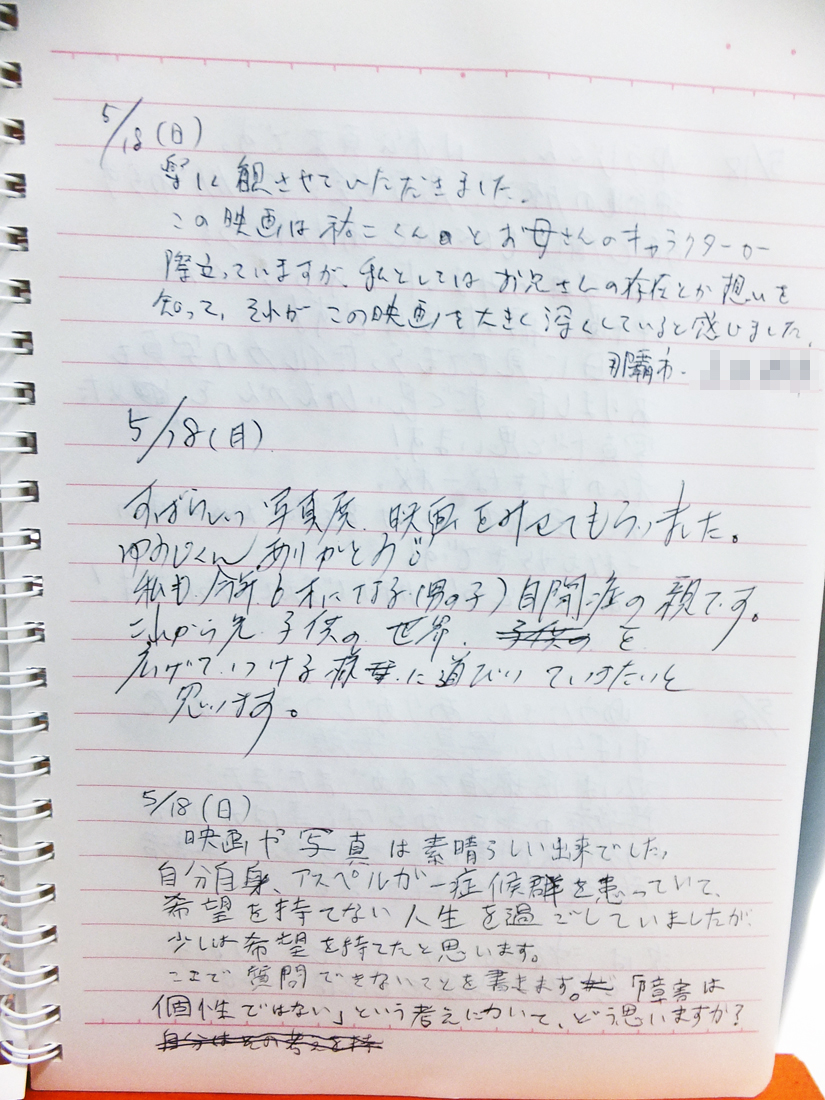 5/18(日)
観させていただきました。
この映画は祐二くんとお母さんのキャラクターが
際立っていますが、私としてはお兄さんの存在とか想いを
知って、それがこの映画を大きく深くしていると感じました。
那覇市.
5/18(月)
すばらしい写真展、映画をみせてもらいました。
ゆうじくんありがとう
私も今年6才になる子(男の子)自閉症の親です。
これから先、子供の世界、を
広げていける様に道びいていけたいと
思います。
5/18(日)
映画や写真は素晴らしい出来でした。
自分自身、アスペルガー症候群を患っていて、
希望を持てない人生を過ごしていましたが、
少しは希望を持てたと思います。
ここで質問できないことを書きます。「障害は
個性ではない」という考えについて、どう思いますか?
自分はその考えを持